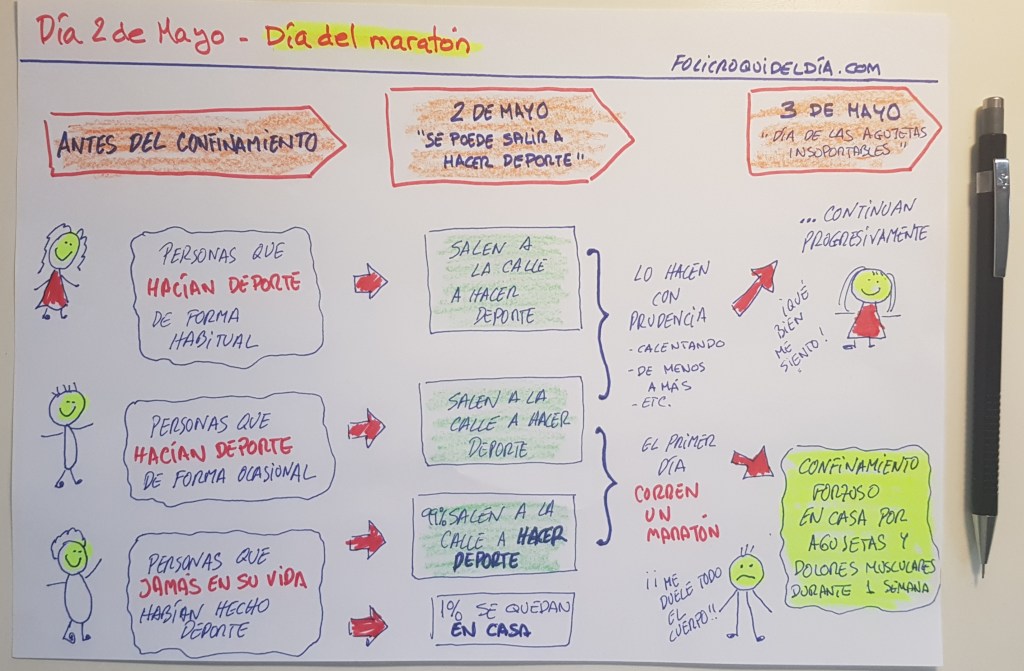 Día 2 de Mayo - Día del maratón
FOLICROQUIDELDÍA.COM
ANTES DEL CONFINAMIENTO
2 DE MAYO
"SE PUEDE SALIR A
HACER DEPORTE"
3 DE MAYO
"DÍA DE LAS AGUJETAS
INSOPORTABLES"
PERSONAS QUE
HACÍAN DEPORTE
DE FORMA
HABITUAL
SALEN A
LA CALLE
A HACER
DEPORTE
PERSONAS QUE
HACÍAN DEPORTE
DE FORMA OCASIONAL
SALEN A LA
CALLE A HACER
DEPORTE
PERSONAS QUE
JAMÁS EN SU VIDA
HABÍAN HECHO
DEPORTE
99% SALEN A LA
CALLE A HACER
DEPORTE
1% SE QUEDAN
EN CASA
LO HACEN
CON
PRUDENCIA
- CALENTANDO
- DE MENOS
A MÁS
- ETC.
... CONTINUAN
PROGRESIVAMENTE
¡QUÉ
BIEN
ME
SIENTO!
EL PRIMER
DÍA
CORREN
UN
MARATÓN
¡¡ME
DUELE TODO
EL
CUERPO!!
CONFINAMIENTO
FORZOSO
EN CASA POR
AGUJETAS Y
DOLORES MUSCULARES
DURANTE 1 SEMANA